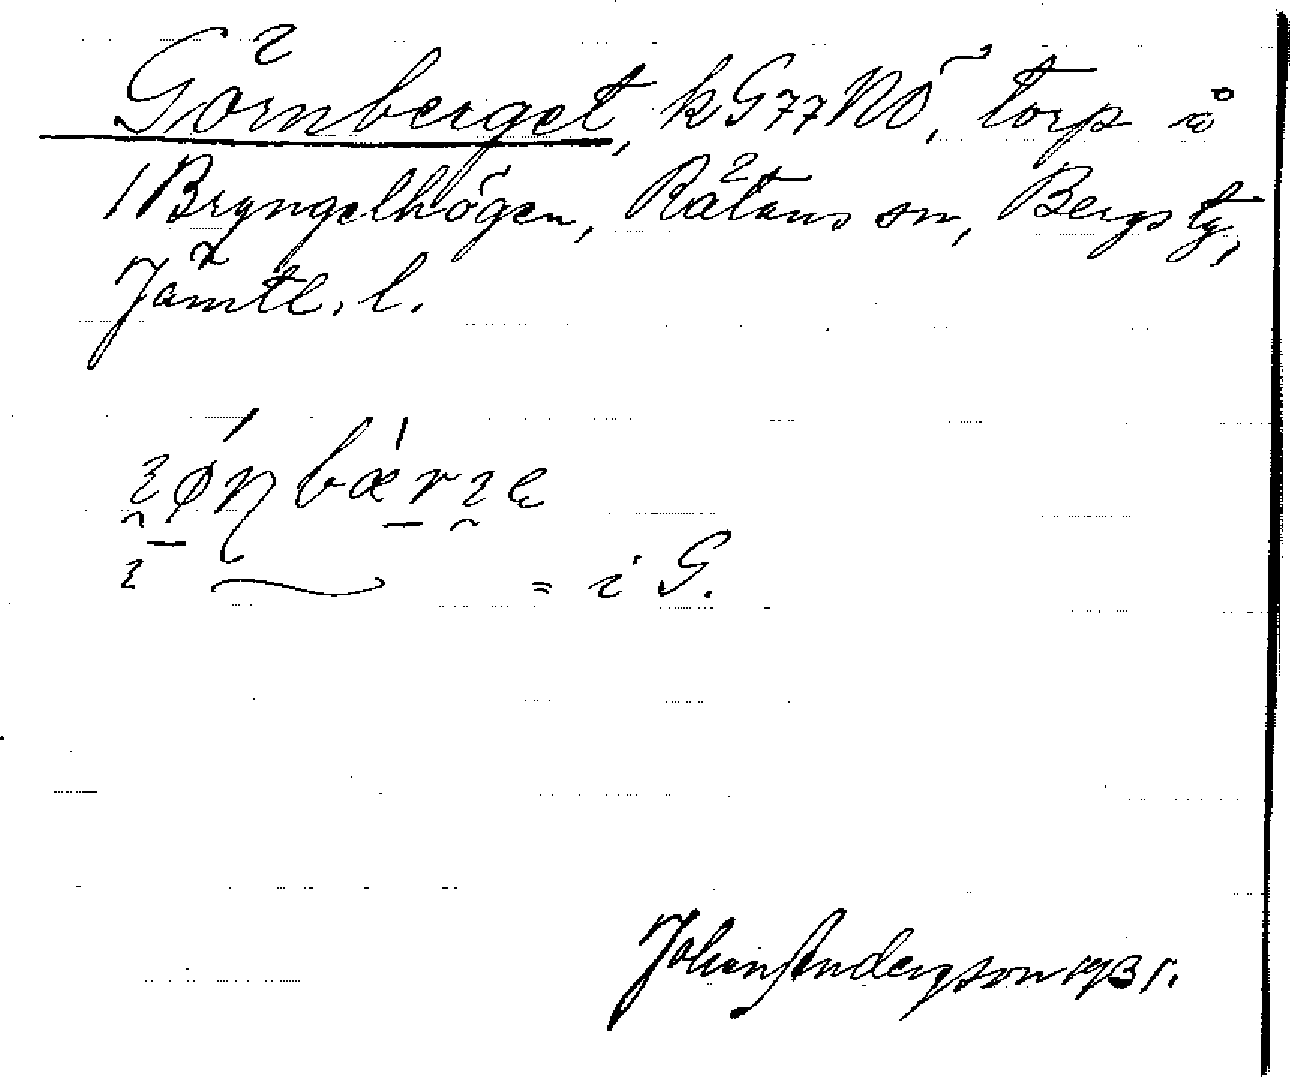 Görnberget, kG77NÖ, torp i
1 Bryngelhögen, Rätans sn, Bergs tg,
Jämtl. l.
= i G.
Johan Anderson 1931.